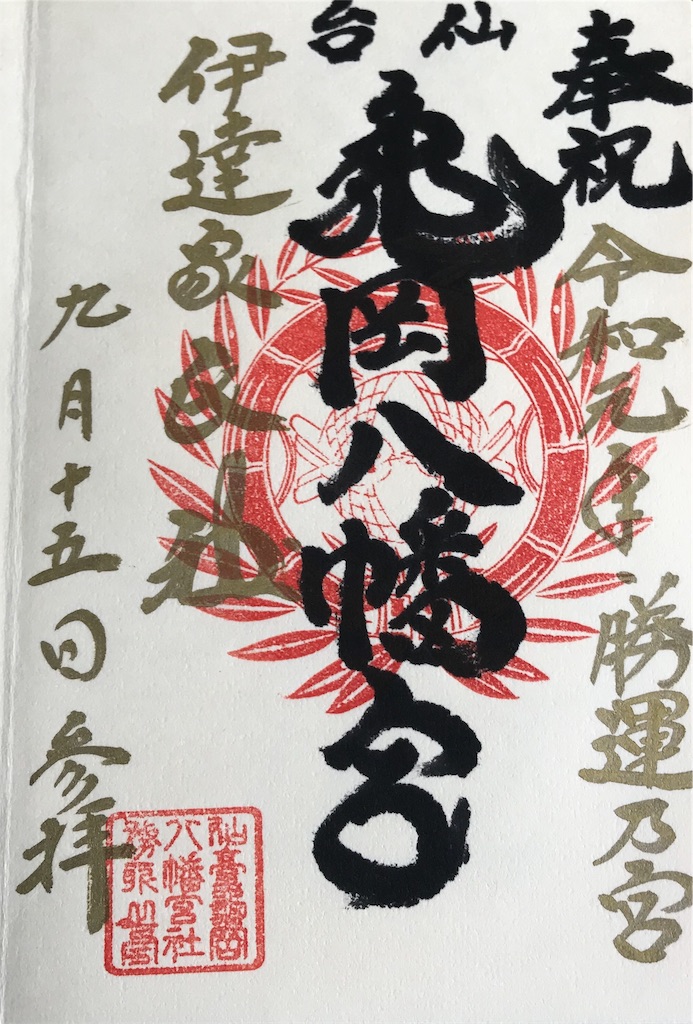 奉祝
令和元年 勝運乃宮
仙台
亀岡八幡宮
伊達家 社
九月十五日参拝
仙臺龜岡
八幡宮社